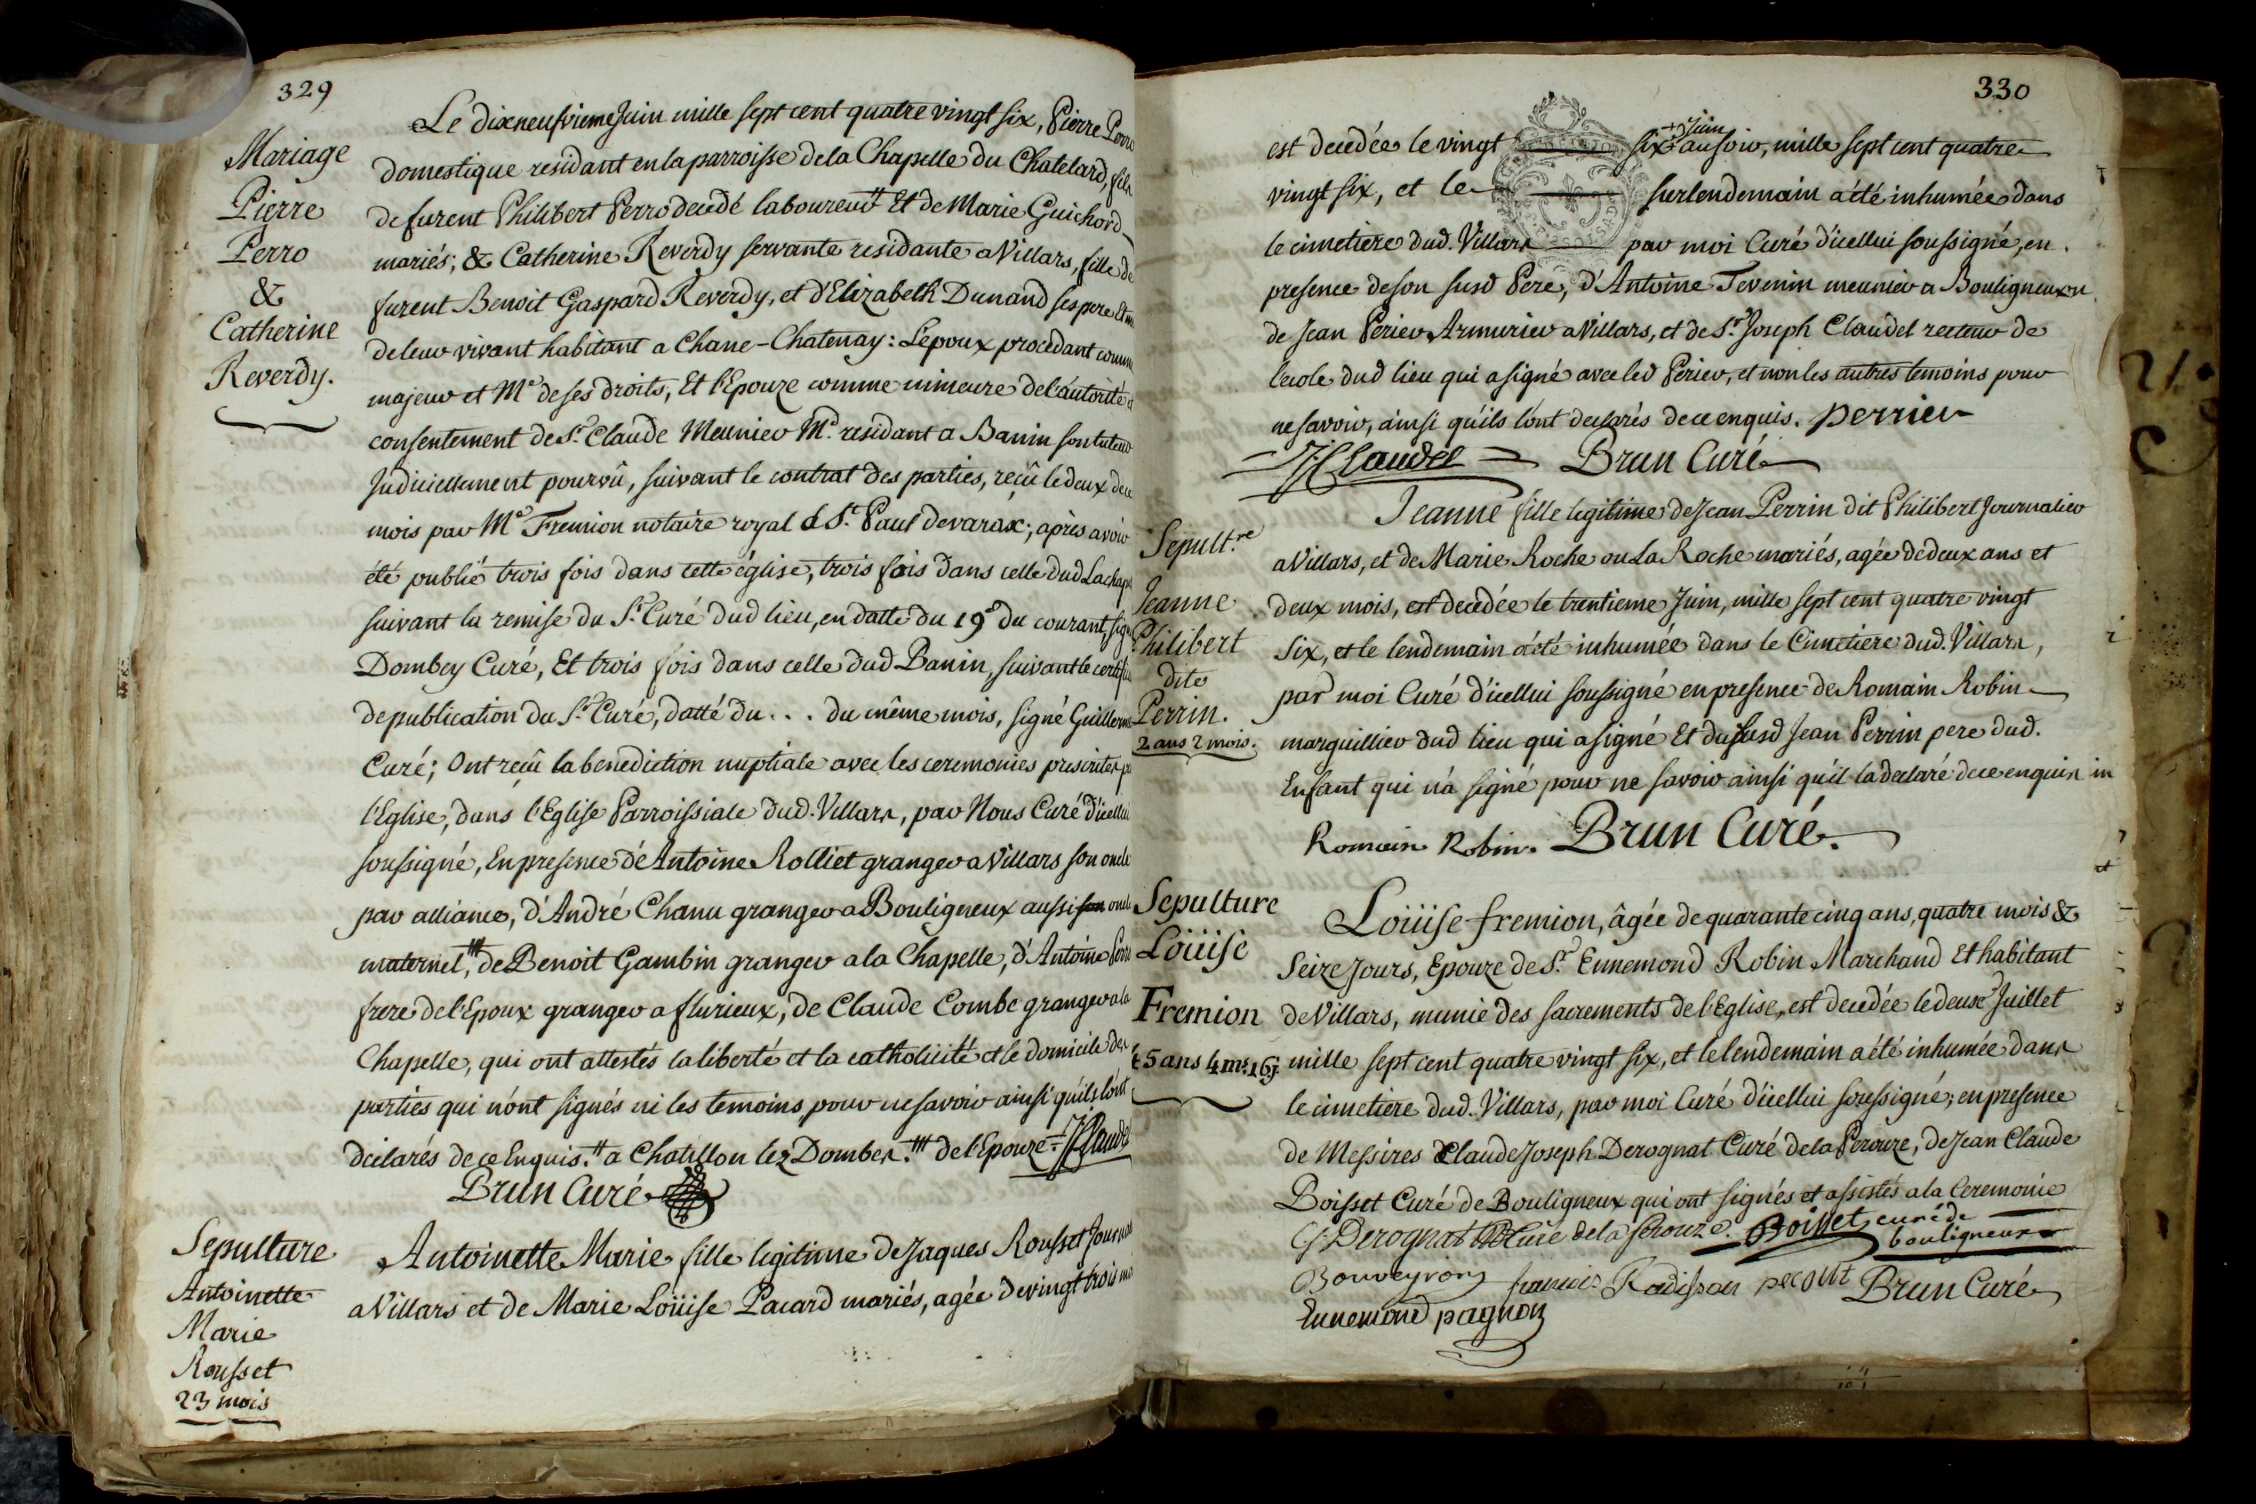 329
Mariage
Pierre
Perro
&
Catherine
Reverdy.
Le dixneufvieme Juin mille sept cent quatre vingt six, Pierre Perro
domestique residant en la parroisse de la Chapelle du Chatelard, fils
de furent Philibert Perro decedé laboureur†† Et de Marie Guichord
mariés; & Catherine Reverdy servante residante a Villars, fille de
furent Benoit Gaspard Reverdy, et d'Elizabeth Dunand ses pere Et
de leur vivant habitant a Chane-Chatenay: L'epoux procedant comme
majeur et Me de ses droits, Et l'Epouze comme mineure de l'autorité et
consentement de Sr. Claude Meunier Md. residant a Banin son tuteur
Judiciellement pourvû, suivant le contrat des parties, reçû le deux de ce
mois par Me Fremion notaire royal à St. Paul de varax; après avoir
été publié trois fois dans cette église, trois fois dans celle dud Lachap
suivant la remise du Sr. Curé dud lieu, en datte du 19e du courant, sign
Dombey Curé, Et trois fois dans celle dud Banin, suivant le certif
de publication du Sr. Curé, datté du . . . du même mois, signé Guillerm
Curé; Ont reçû la benediction nuptiale avec les ceremonies prescrites p
l'Eglise, dans l'Eglise Parroissiale dud. Villars, par Nous Curé d'icellui
soussigné, En presence d'Antoine Rolliet granger a Villars son oncle
par alliance, d'André Chanu granger a Bouligneux aussi son oncl
maternel,††† de Benoit Gambin granger a la Chapelle, d'Antoine Perro
frere de l'Epoux granger a flurieux, de Claude Combe granger a la
Chapelle, qui ont attestés la liberté et la catholicité et le domicile des
parties qui n'ont signés ni les temoins pour ne savoir ainsi qu'ils l'ont
déclarés de ce Enquis.†† a Chatillon lez Dombes.††† de l'Epouze= J Claudel
Brun Curé
Sepulture
Antoinette
Marie
Rousset
23 mois
Antoinette Marie fille legitime de Jaques Rousset Journal
a Villars et de Marie Loüise Pacard mariés, agée de vingt trois mo
330
est decedée le vingt six + juin au soir, mille sept cent quatre
vingt six, et le surlendemain a été inhumée dans
le cimetiere dud. Villars par moi Curé d'icellui soussigné, en
presence de son susd Pere, d'Antoine Tevenin meunier a Bouligneux
de Jean Perier Armurier a Villars, et de Sr. Joseph Claudel recteur de
l'ecole dud lieu qui a signé avec led Perier, et non les autres temoins pour
ne savoir, ainsi qu'ils l'ont declarés de ce enquis. perrier
J Claudel Brun Curé
Sepult.re
Jeanne
Philibert
dite
Perrin.
2 ans 2 mois.
Jeanne fille legitime de Jean Perrin dit Philibert Journalier
a Villars, et de Marie Roche ou La Roche mariés, agée de deux ans et
deux mois, est decedée le trentieme Juin, mille sept cent quatre vingt
six, et le lendemain a été inhumée dans le Cimetiere dud. Villars,
par moi Curé d'icellui soussigné en presence de Romain Robin
marguillier dud lieu qui a signé Et du susd Jean Perrin pere dud.
Enfant qui n'a signé pour ne savoir ainsi qu'il l'a declaré de ce enquis
Romain Robin. Brun Curé.
Sepulture
Loüise
Fremion
45 ans 4 ms. 16 j
Loüise fremion, âgée de quarante cinq ans, quatre mois &
seize Jours, Epouze de Sr. Ennemond Robin Marchand Et habitant
de Villars, munie des sacrements de l'Eglise, est decedée le deux Juillet
mille sept cent quatre vingt six, et le lendemain a été inhumée dans
le cimetiere dud. Villars, par moi Curé d'icellui soussigné; en presence
de Messires Claude Joseph Derognat Curé de la Perouze, de Jean Claude
Boisset Curé de Bouligneux qui ont signés et assistés a la Ceremonie
Cj. Derognat Curé de la perouze. Boisset curé de bouligneux
Bouveyron francois Radisson pecout Brun Curé
Ennemond pagnon